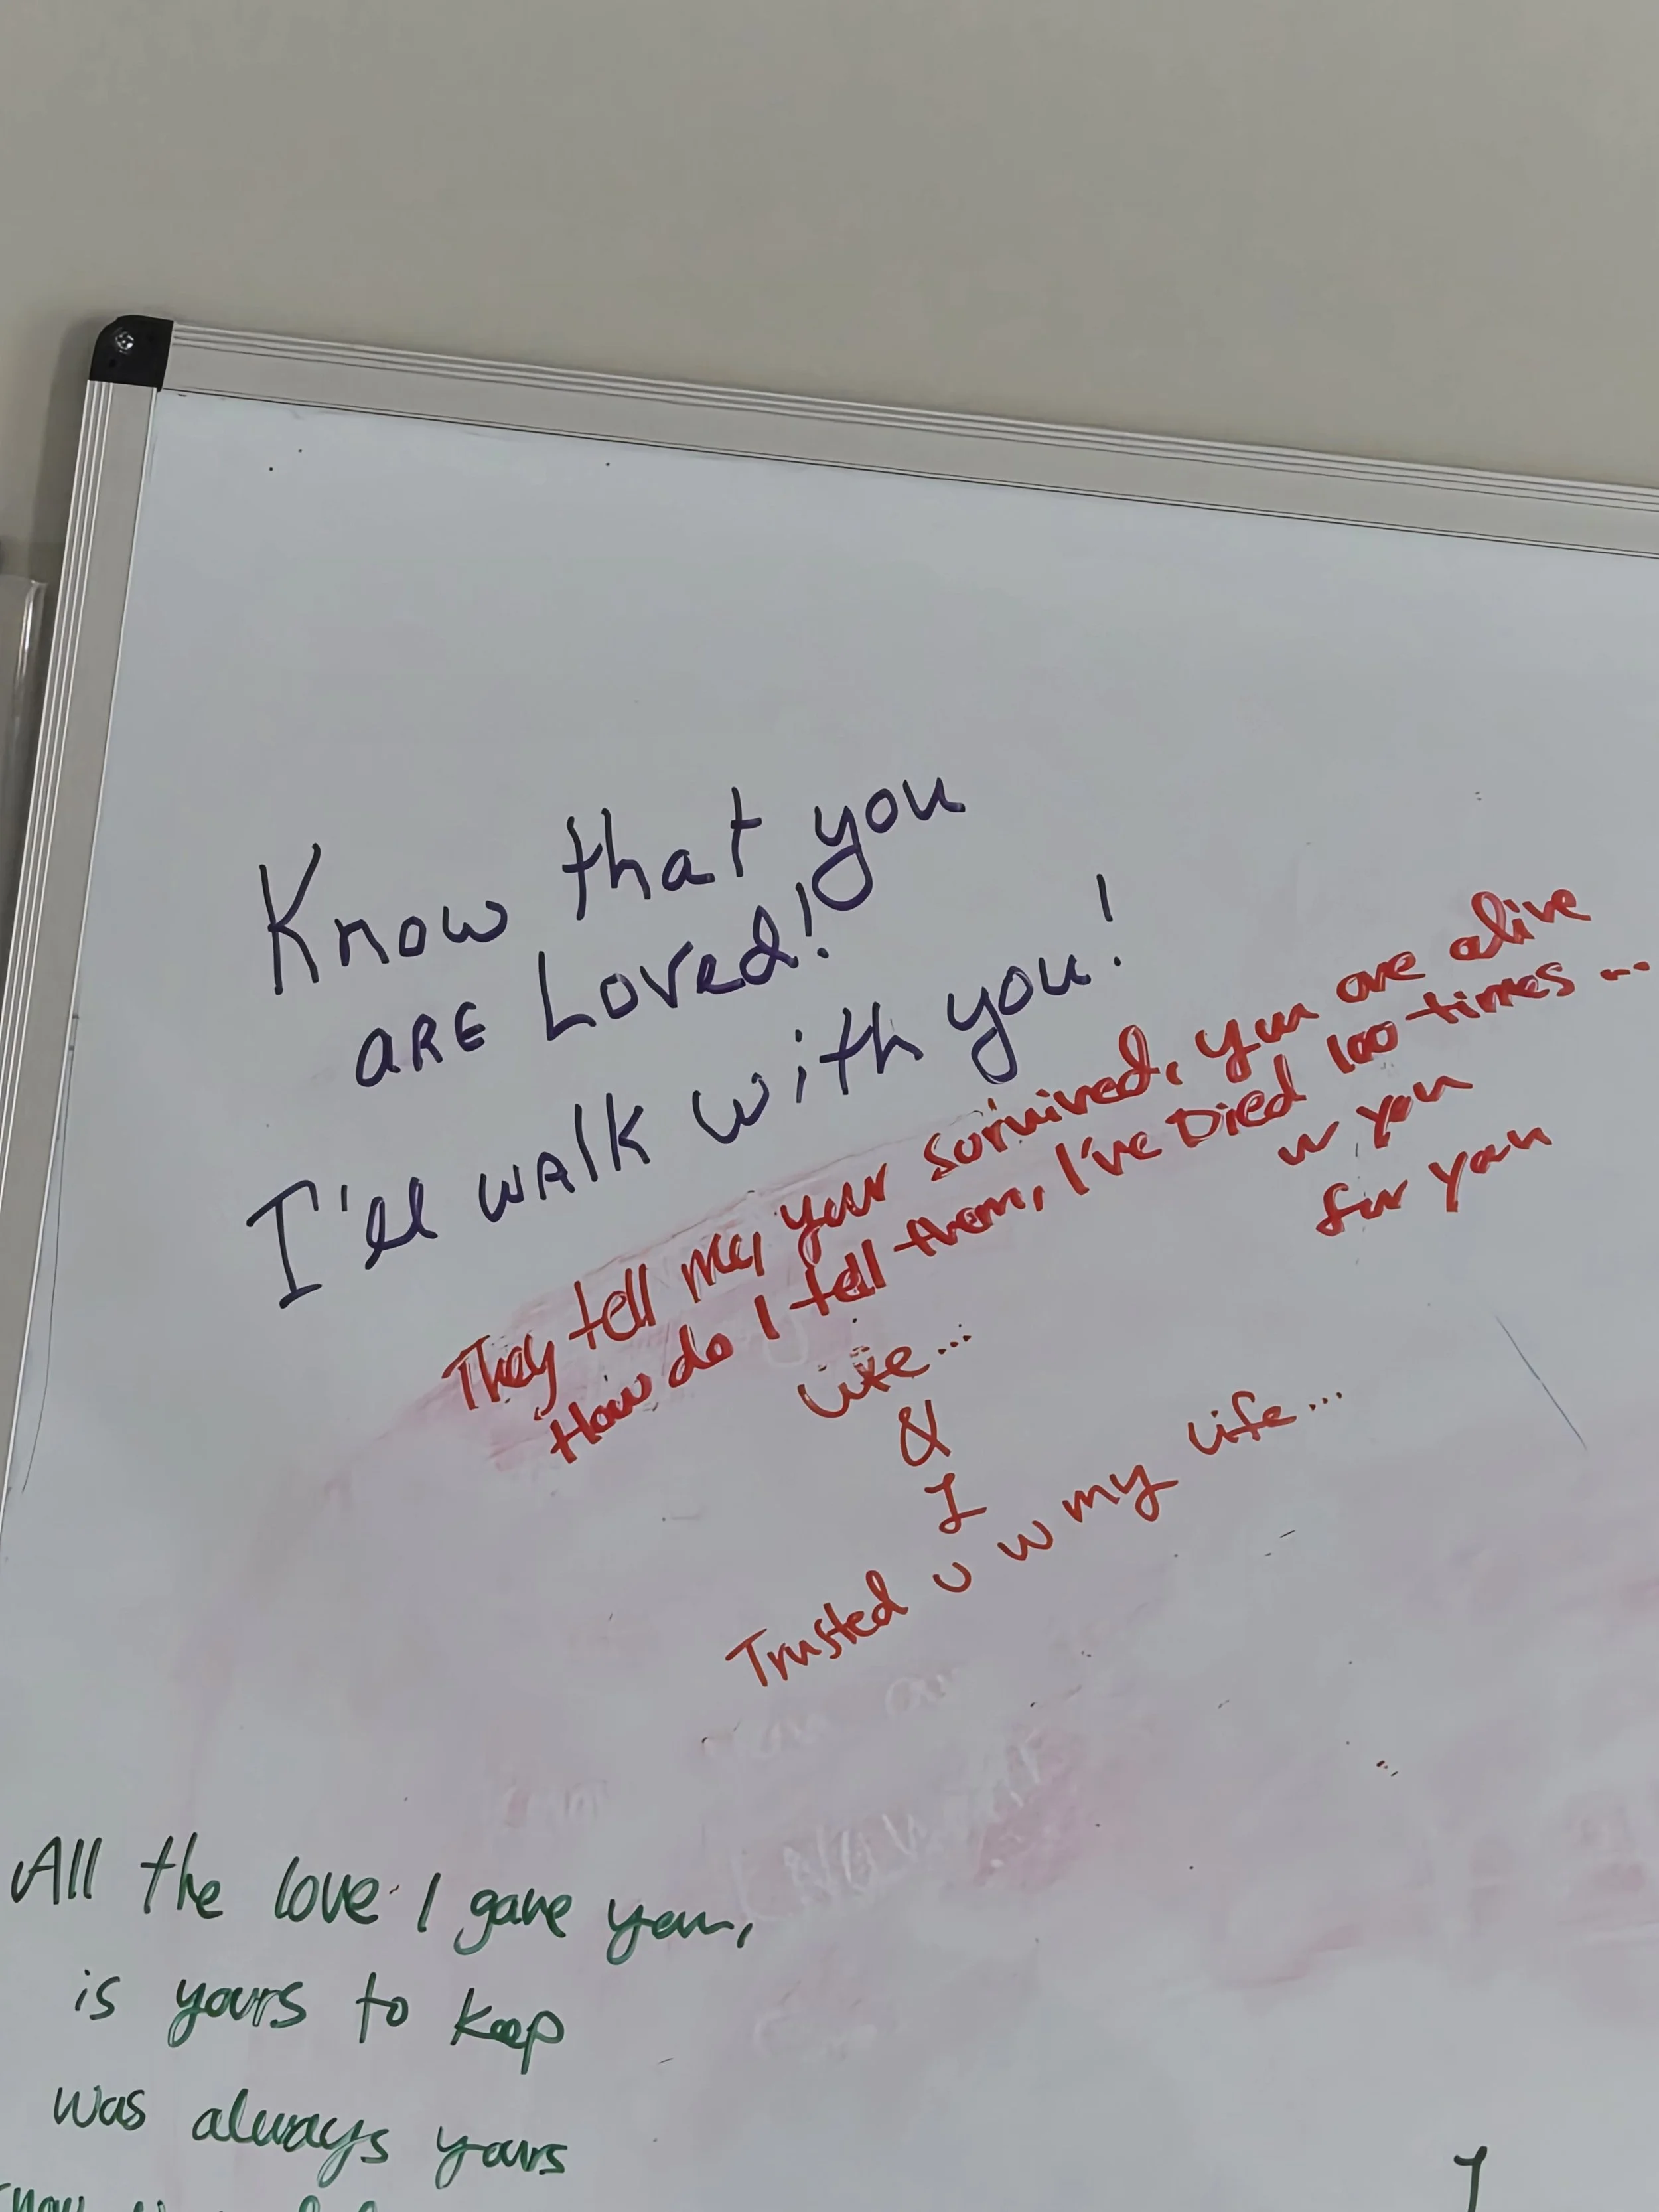 Know that you
ARE Loved!
I'll walk with you!
They tell me, your survived, you are alive
How do I tell them, I've Died 100 times ...
w you
for you
Life...
&
I
Trusted u w my life...
All the love I gave you,
is yours to keep
was always yours
I